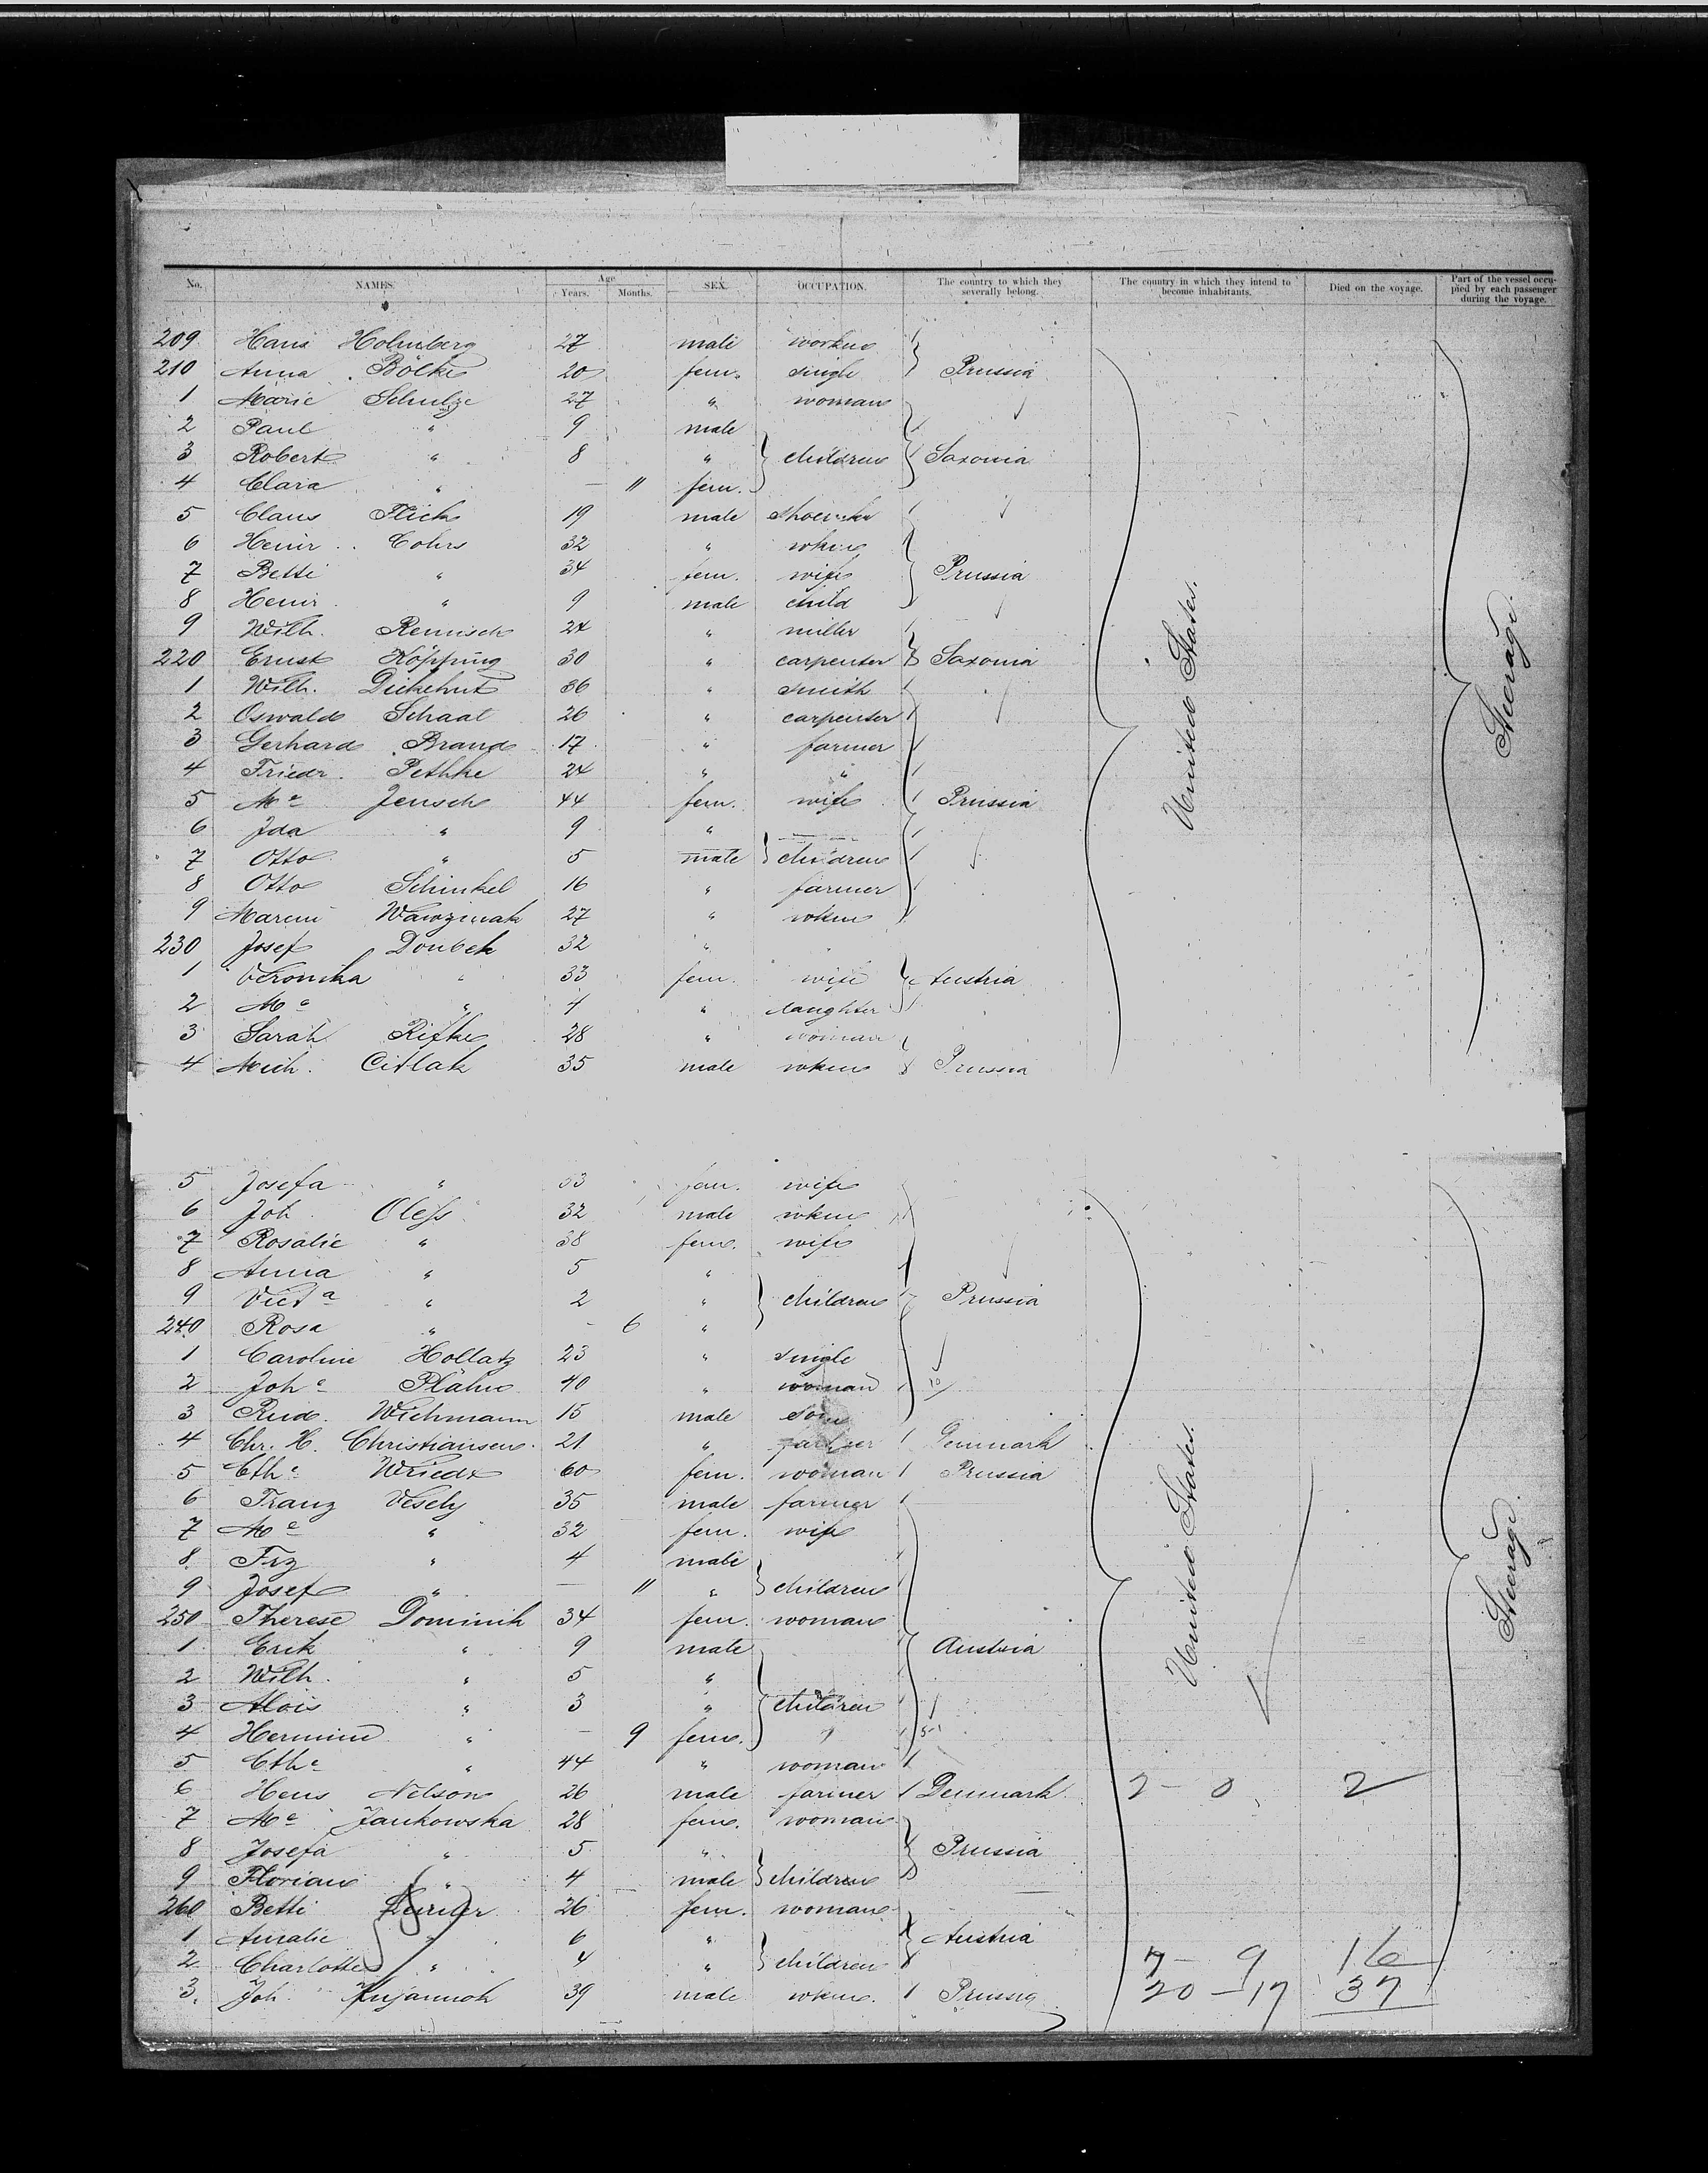 No. NAMES. Age Years. Months. SEX. OCCUPATION. The country to which they severally belong. The country in which they intend to become inhabitants. Died on the voyage. Part of the vessel occupied by each passenger during the voyage.
209 Hans Holmberg 27 male
210 Anna Bölke 20 fem. single Prussia
1 Marie Schulze 27 " woman
2 Paul " 9 male
3 Robert " 8 " children Saxonia
4 Clara " — 11 fem.
5 Claus Flick 19 male
6 Heinr. Cohrs 32 "
7 Betti " 34 fem. wife Prussia
8 Heinr. " 9 male child
9 Wilh. Remisch 24 " miller
220 Ernst Köpping 30 " carpenter Saxonia
1 Wilh. Dickehut 36 " smith
2 Oswald Schaal 26 " carpenter
3 Gerhard Brand 17 " farmer
4 Friedr. Pethke 24 " "
5 Me Jensch 44 fem. wife Prussia
6 Ida " 9 "
7 Otto " 5 male children
8 Otto Schinkel 16 " farmer
9 27 "
230 Josef Doubek 32 "
1 Veronika " 33 fem. wife Austria
2 Me " 4 " daughter
3 Sarah Rifke 28 " woman
4 Mich. Citlak 35 male Prussia
United States.
Steerage.
5 Josefa " 33 fem. wife
6 Joh. Oless 32 male
7 Rosalie " 38 fem. wife
8 Anna " 5 "
9 Victa " 2 " children Prussia
240 Rosa " - 6 "
1 Caroline Hollatz 23 " single
2 Johe Plähn 40 " woman 10
3 Rud. Wichmann 15 male son
4 Chr. H. Christiansen 21 " farmer Denmark
5 Cthe Wriedt 60 fem. woman Prussia
6 Franz Vesely 35 male farmer
7 Me " 32 fem. wife
8 Frz " 4 male
9 Josef " — 11 " children
250 Therese Dominik 34 fem. woman
1 Erik " 9 male Austria
2 Wilh. " 5 "
3 Alois " 3 " children
4 Hermine " — 9 fem.
5 Cthe " 44 " woman
6 Hens Nelson 26 male farmer Denmark 2 - 0 2
7 Me Jankowska 28 fem. woman
8 Josefa " 5 " Prussia
9 Florian " 4 male children
260 Betti 26 fem. woman
1 Amalie " 6 " Austria
2 Charlotte " 4 " children 7 - 9 16
3. Joh. 39 male Prussia 20 - 17 37
United States.
Steerage.